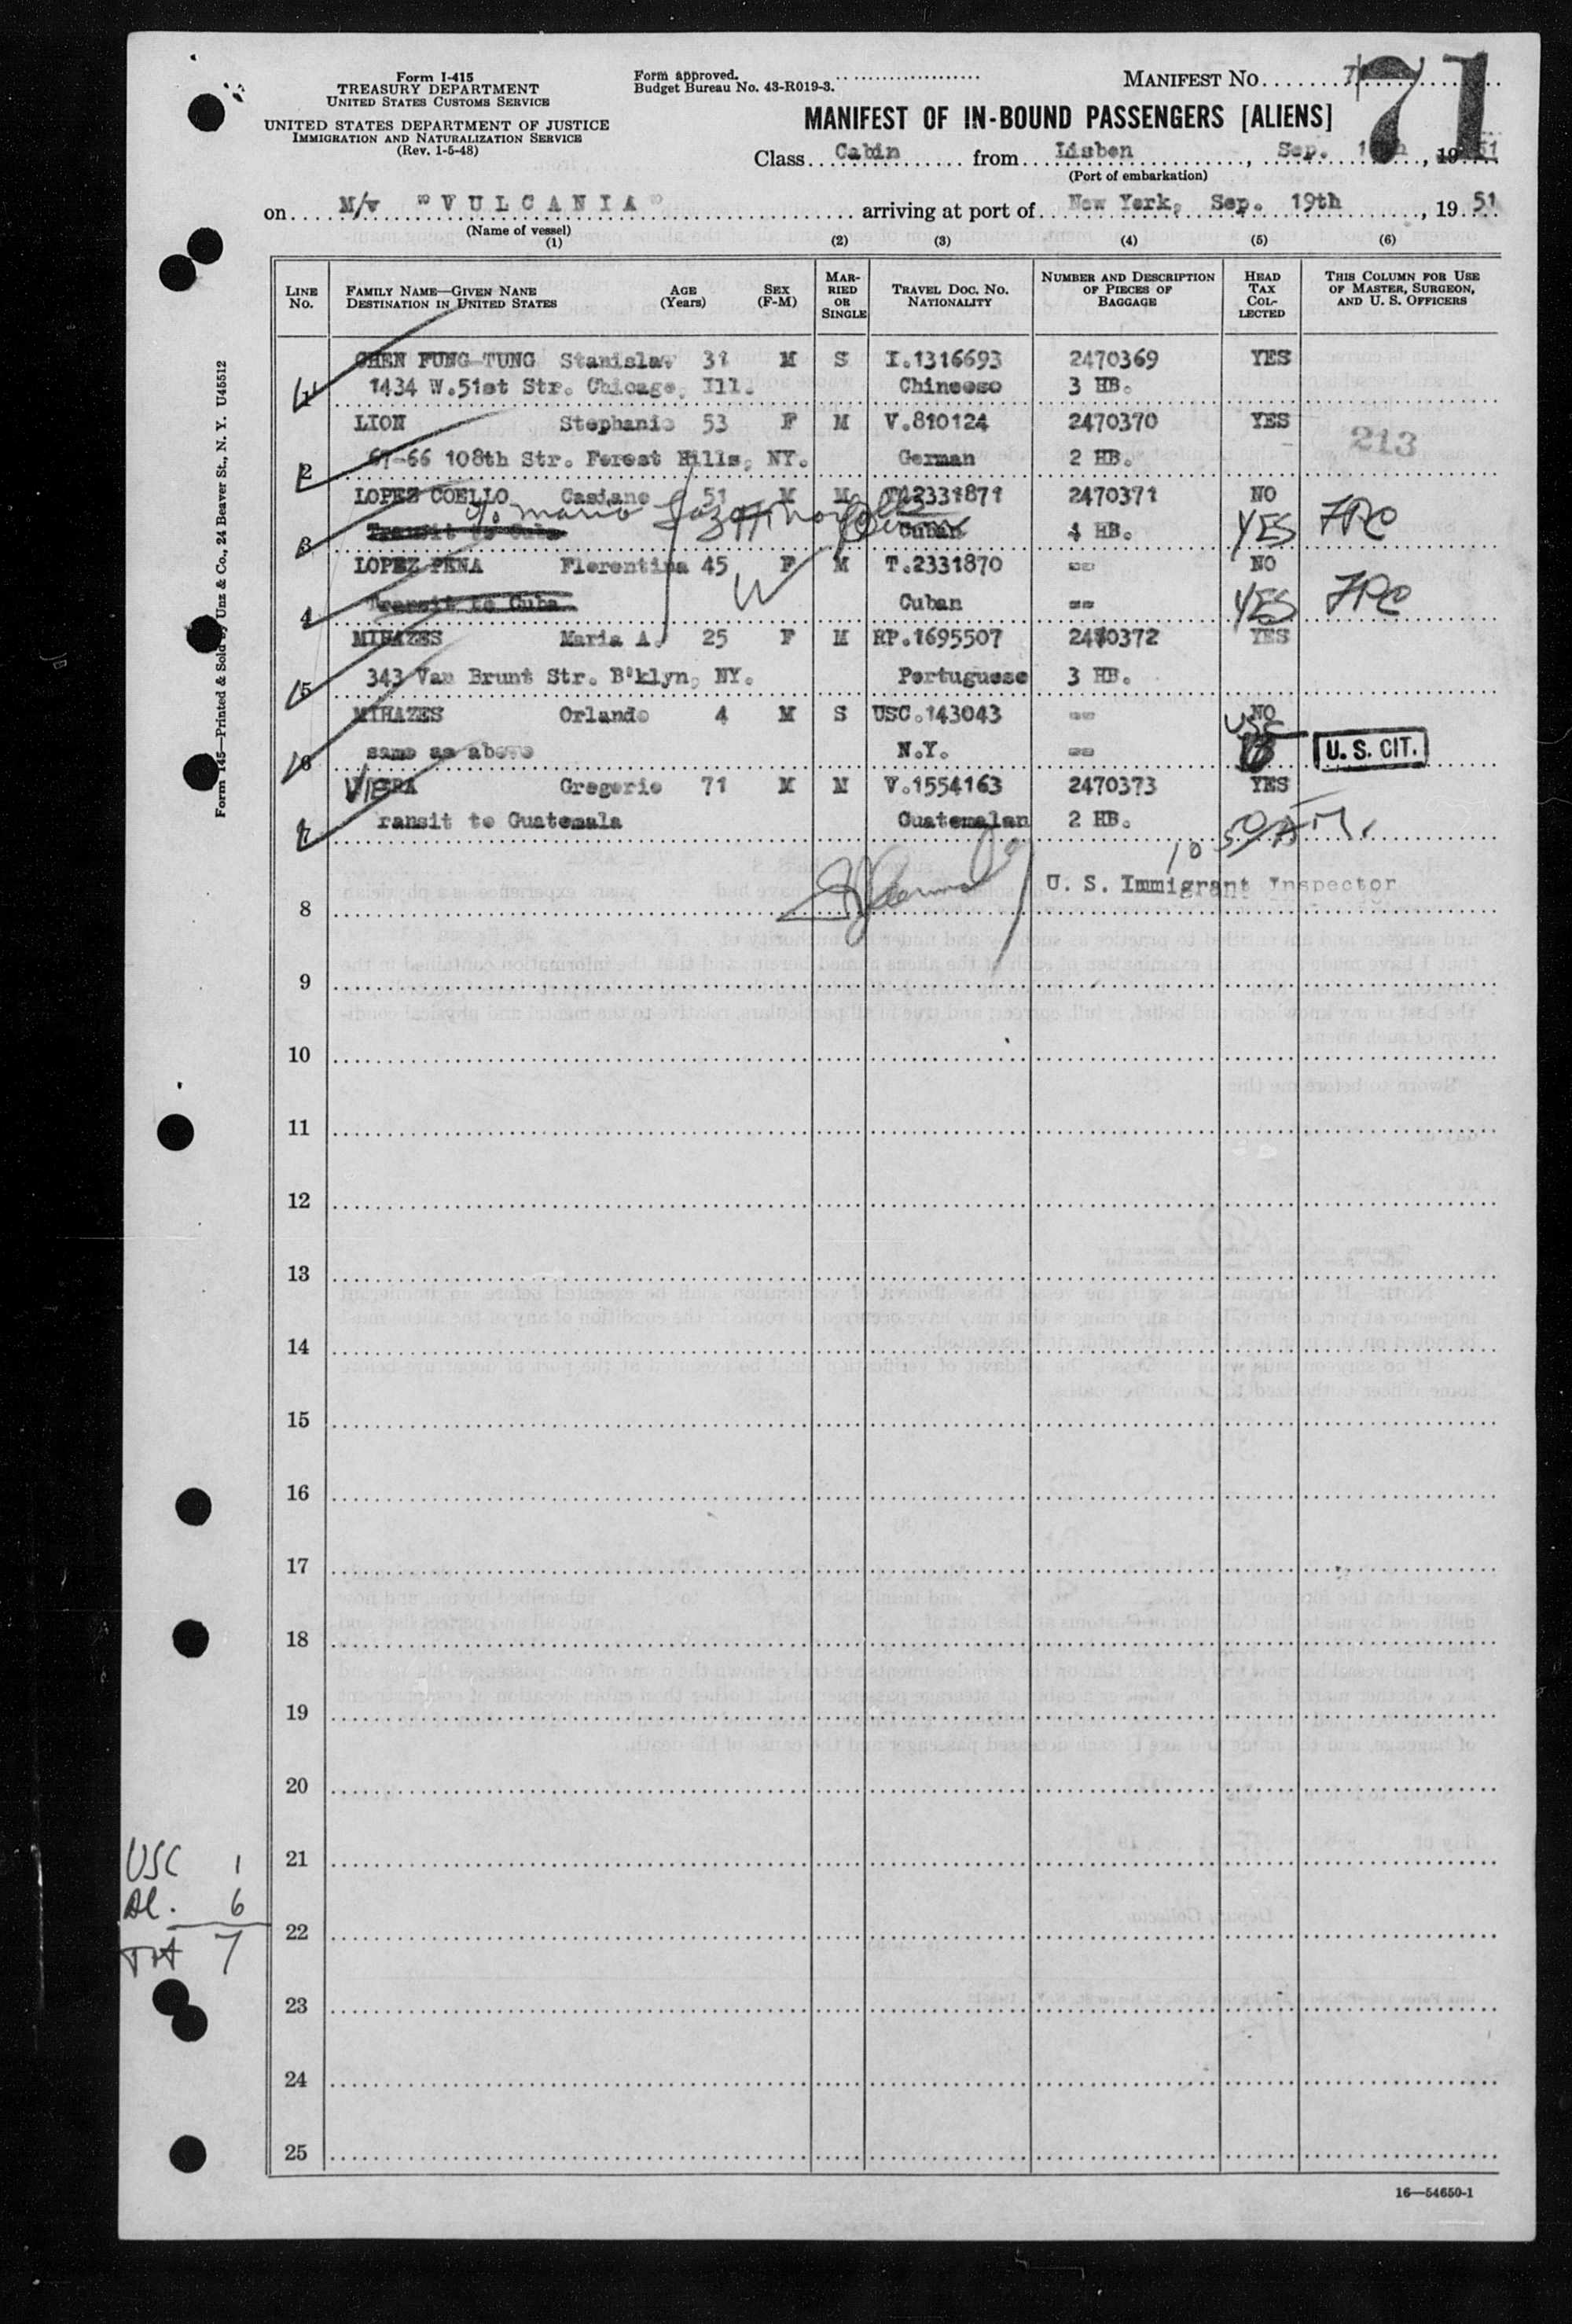 Form I-415
TREASURY DEPARTMENT
UNITED STATES CUSTOMS SERVICE
UNITED STATES DEPARTMENT OF JUSTICE
IMMIGRATION AND NATURALIZATION SERVICE
(Rev. 1-5-48)
Form approved.
Budget Bureau No. 43-R019-3.
MANIFEST NO. 71
MANIFEST OF IN-BOUND PASSENGERS [ALIENS]
Class Cabin from Lisbon, Sep. 1951
(Port of embarkation)
on M/v "VULCANIA" arriving at port of New York, Sep. 19th, 1951
(Name of vessel)
(1) (2) (3) (4) (5) (6)
LINE No. FAMILY NAME—GIVEN NANE DESTINATION IN UNITED STATES AGE (Years) SEX (F-M) MAR-RIED OR SINGLE TRAVEL DOC. NO. NATIONALITY NUMBER AND DESCRIPTION OF PIECES OF BAGGAGE HEAD TAX COL-LECTED THIS COLUMN FOR USE OF MASTER, SURGEON, AND U. S. OFFICERS
CHEN FUNG TUNG Stanislaw 31 M S I.1316693 2470369 YES
1 1434 W.51st Str. Chicago, Ill. Chineese 3 HB.
LION Stephanie 53 F M V.810124 2470370 YES
213
2 67-66 108th Str. Forest Hills, NY. German 2 HB.
LOPEZ COELLO Casiano 51 M M T.2331871 2470371 NO
c/o Mario
3 Transit to Cuba Cuban 4 HB. YES 7PC
LOPEZ PENA Florentina 45 F M T.2331870 -- NO
4 Transit to Cuba Cuban -- YES 7PC
MIHAZES Maria A. 25 F M RP.1695507 2470372 YES
5 343 Van Brunt Str. B'klyn, NY. Portuguese 3 HB.
MIHAZES Orlando 4 M S USC.143043 -- NO
USC
6 same as above N.Y. -- U.S. CIT.
VIERA Gregorio 71 M M V.1554163 2470373 YES
7 ransit to Guatemala Guatemalan 2 HB.
10 50 AM.
U. S. Immigrant Inspector
8
9
10
11
12
13
14
15
16
17
18
19
20
21
22
23
24
25
USC 1
Al. 6
Tot 7
16—54650-1
Form 145—Printed & Sold by Unz & Co., 24 Beaver St., N. Y. U45512